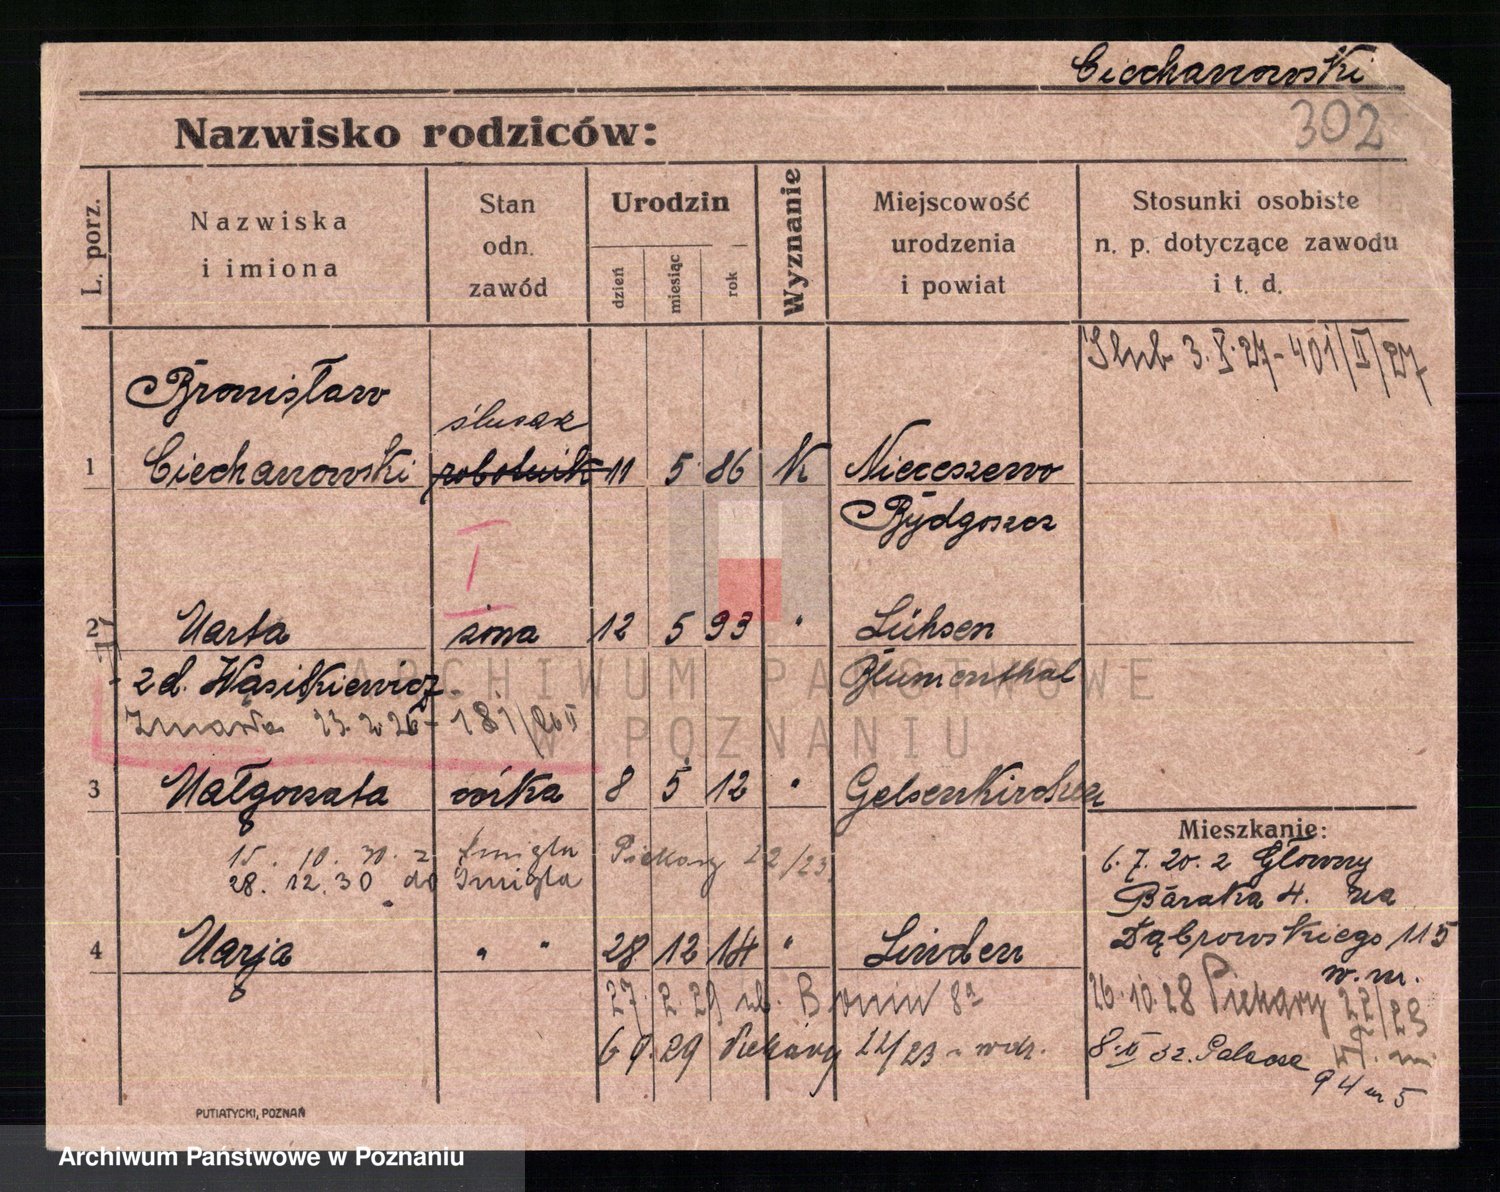 Ciechanowski
302
Nazwisko rodziców:
L. porz.
Nazwiska
i imiona
Stan
odn.
zawód
Urodzin
dzień
miesiąc
rok
Wyznanie
Miejscowość
urodzenia
i powiat
Stosunki osobiste
n. p. dotyczące zawodu
i t. d.
Ślub 3. X. 27 - 401/II/27
Bronisław
ślusarz
1 Ciechanowski robotnik 11 5 86 K Nieceszewo
Bydgoszcz
I
2 Marta żona 12 5 93 " Lühsen
2 d. Wasilkiewicz Blumenthal
Zmarła 23. 2 26 - 181/26 II
3 Małgorzata córka 8 5 12 " Gelsenkirchen
Mieszkanie:
15. 10. 30. z Śmigla Piekary 22/23
28. 12. 30 do Śmigla
6. 7. 20. z Główny
Baraka 4. na
Dąbrowskiego 115
w. m.
4 Marja " " 28 12 14 " Linden
27. 2 29 ul. Bonin 8a
26. 10. 28 Piekary 22/23
6 9. 29 Piekary 22/23
8. II 32.
94 m 5
PUTIATYCKI, POZNAŃ
ARCHIWUM PAŃSTWOWE
W POZNANIU
Archiwum Państwowe w Poznaniu